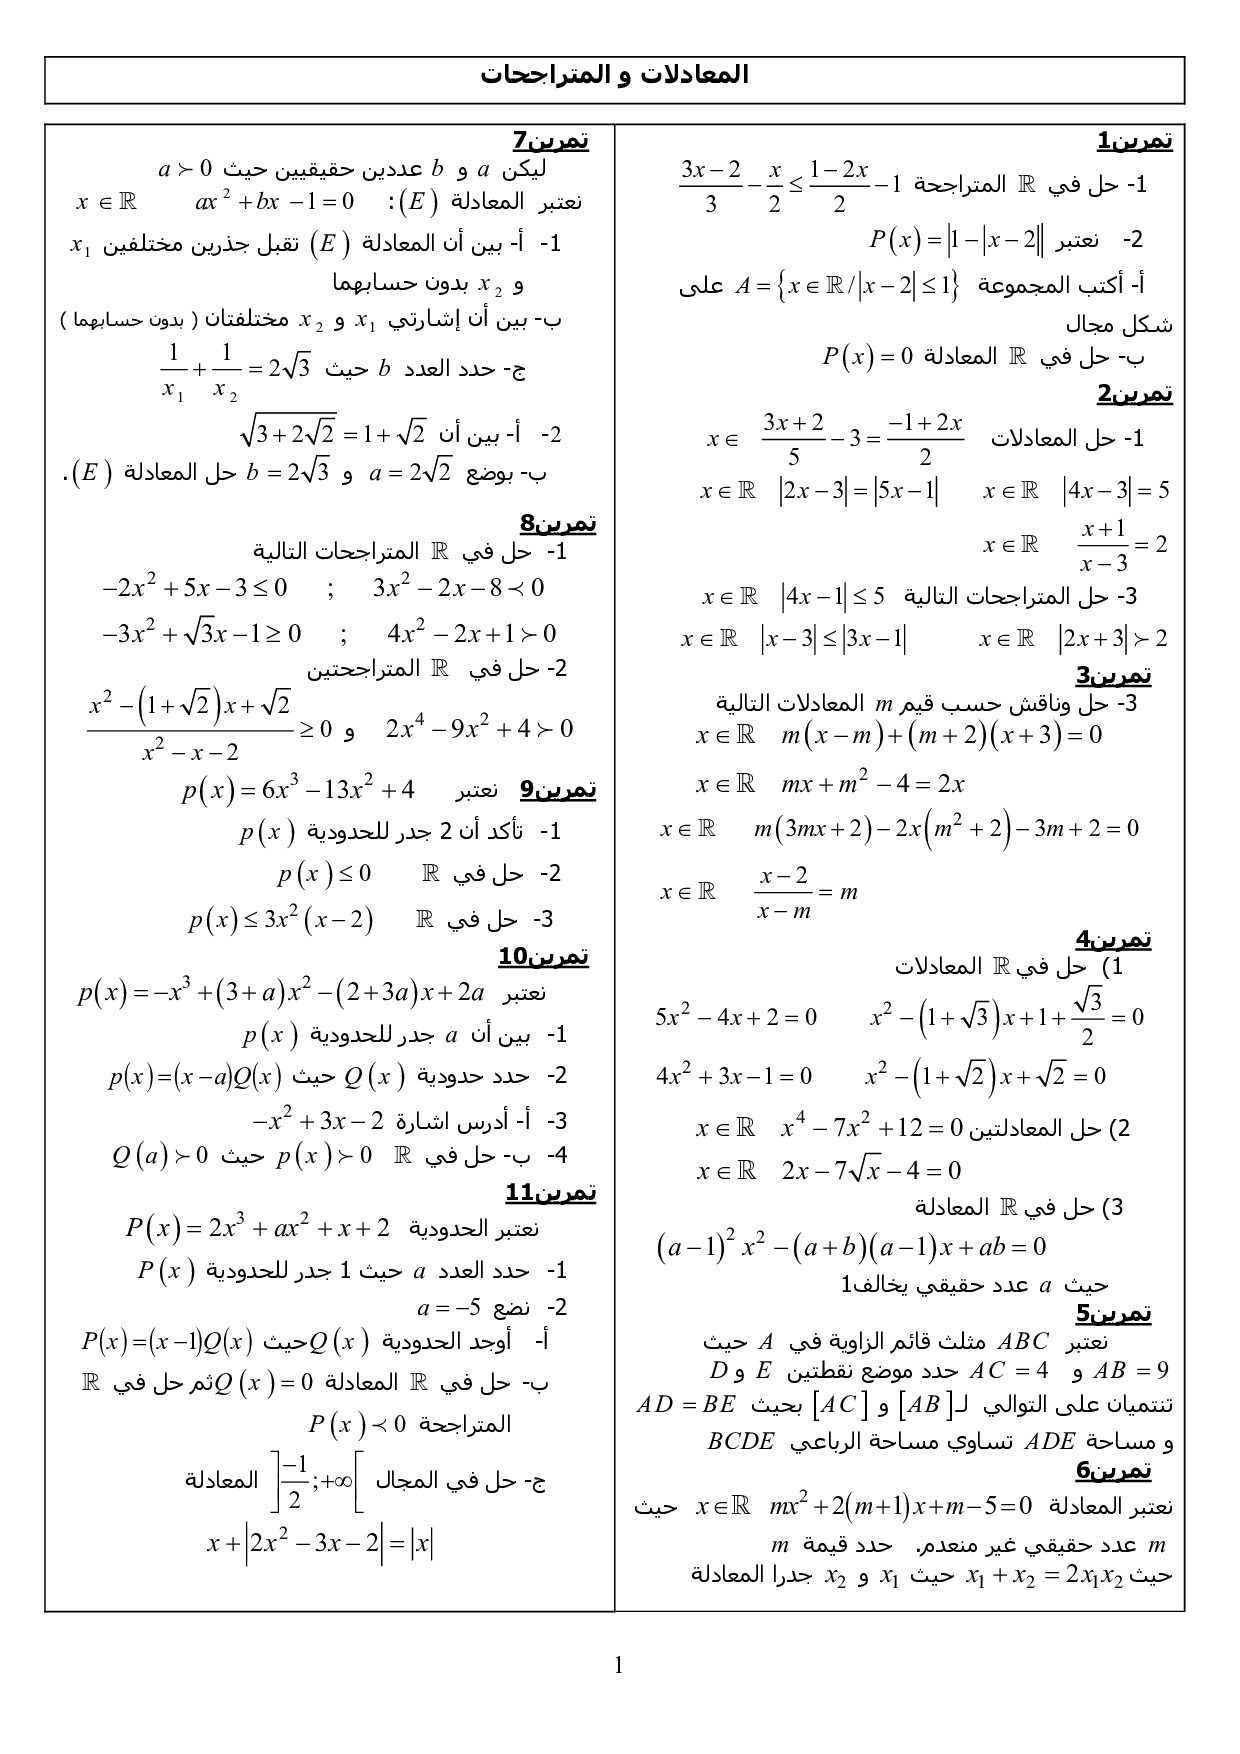 المعادلات و المتراجحات
تمرين1
1- حل في ℝ المتراجحة (3x−2)/3 − x/2 ≤ (1−2x)/2 − 1
2- نعتبر P(x) = |1−|x−2||
أ- أكتب المجموعة A = {x∈ℝ/|x−2| ≤ 1} على
شكل مجال
ب- حل في ℝ المعادلة P(x) = 0
تمرين2
1- حل المعادلات (3x+2)/5 − 3 = (−1+2x)/2 x∈
|4x−3| = 5 x∈ℝ |2x−3| = |5x−1| x∈ℝ
(x+1)/(x−3) = 2 x∈ℝ
3- حل المتراجحات التالية |4x−1| ≤ 5 x∈ℝ
|2x+3| ≻ 2 x∈ℝ |x−3| ≤ |3x−1| x∈ℝ
تمرين3
3- حل وناقش حسب قيم m المعادلات التالية
x∈ℝ m(x−m)+(m+2)(x+3) = 0
x∈ℝ mx+m²−4 = 2x
x∈ℝ m(3mx+2)−2x(m²+2)−3m+2 = 0
x∈ℝ (x−2)/(x−m) = m
تمرين4
1) حل في ℝ المعادلات
5x²−4x+2 = 0 x²−(1+√3)x+1+√3/2 = 0
4x²+3x−1 = 0 x²−(1+√2)x+√2 = 0
2) حل المعادلتين x⁴−7x²+12 = 0 x∈ℝ
x∈ℝ 2x−7√x−4 = 0
3) حل في ℝ المعادلة
(a−1)²x²−(a+b)(a−1)x+ab = 0
حيث a عدد حقيقي يخالف1
تمرين5
نعتبر ABC مثلث قائم الزاوية في A حيث
AB = 9 و AC = 4 حدد موضع نقطتين E و D
تنتميان على التوالي لـ[AB] و [AC] بحيث AD = BE
و مساحة ADE تساوي مساحة الرباعي BCDE
تمرين6
نعتبر المعادلة mx²+2(m+1)x+m−5=0 x∈ℝ حيث
m عدد حقيقي غير منعدم. حدد قيمة m
حيث x₁+x₂ = 2x₁x₂ حيث x₁ و x₂ جدرا المعادلة
تمرين7
ليكن a و b عددين حقيقيين حيث a ≻ 0
نعتبر المعادلة (E): ax²+bx−1 = 0 x∈ℝ
1- أ- بين أن المعادلة (E) تقبل جذرين مختلفين x₁
و x₂ بدون حسابهما
ب- بين أن إشارتي x₁ و x₂ مختلفتان ( بدون حسابهما )
ج- حدد العدد b حيث 1/x₁ + 1/x₂ = 2√3
2- أ- بين أن √(3+2√2) = 1+√2
ب- بوضع a = 2√2 و b = 2√3 حل المعادلة (E).
تمرين8
1- حل في ℝ المتراجحات التالية
−2x²+5x−3 ≤ 0 ; 3x²−2x−8 ≺ 0
−3x²+√3x−1 ≥ 0 ; 4x²−2x+1 ≻ 0
2- حل في ℝ المتراجحتين
2x⁴−9x²+4 ≻ 0 و (x²−(1+√2)x+√2)/(x²−x−2) ≥ 0
تمرين9 نعتبر p(x) = 6x³−13x²+4
1- تأكد أن 2 جدر للحدودية p(x)
2- حل في ℝ p(x) ≤ 0
3- حل في ℝ p(x) ≤ 3x²(x−2)
تمرين10
نعتبر p(x) = −x³+(3+a)x²−(2+3a)x+2a
1- بين أن a جدر للحدودية p(x)
2- حدد حدودية Q(x) حيث p(x)=(x−a)Q(x)
3- أ- أدرس اشارة −x²+3x−2
4- ب- حل في ℝ p(x) ≻ 0 حيث Q(a) ≻ 0
تمرين11
نعتبر الحدودية P(x) = 2x³+ax²+x+2
1- حدد العدد a حيث 1 جدر للحدودية P(x)
2- نضع a = −5
أ- أوجد الحدودية Q(x) حيث P(x)=(x−1)Q(x)
ب- حل في ℝ المعادلة Q(x) = 0 ثم حل في ℝ
المتراجحة P(x) ≺ 0
ج- حل في المجال ]−1/2;+∞[ المعادلة
x+|2x²−3x−2| = |x|
1